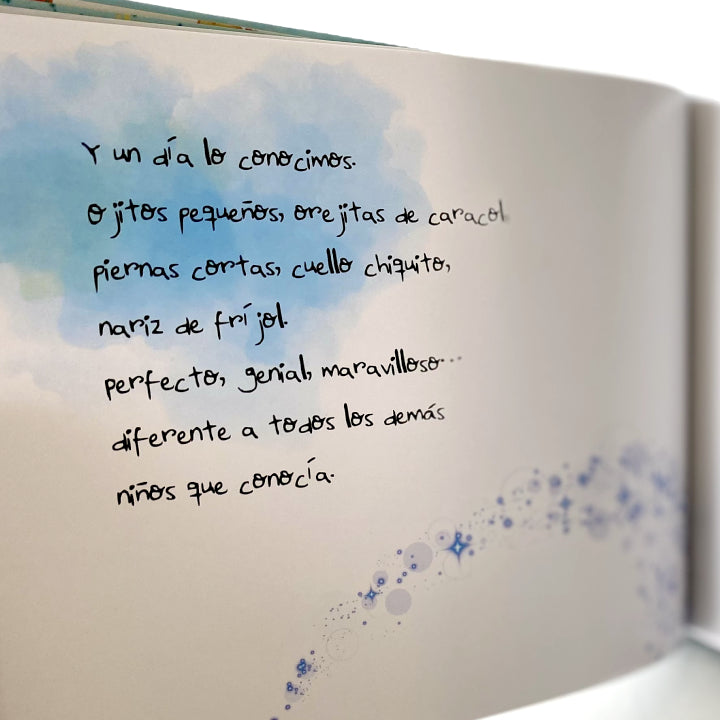 Y un día lo conocimos.
Ojitos pequeños, orejitas de caracol
piernas cortas, cuello chiquito,
nariz de fríjol.
perfecto, genial, maravilloso...
diferente a todos los demás
niños que conocía.